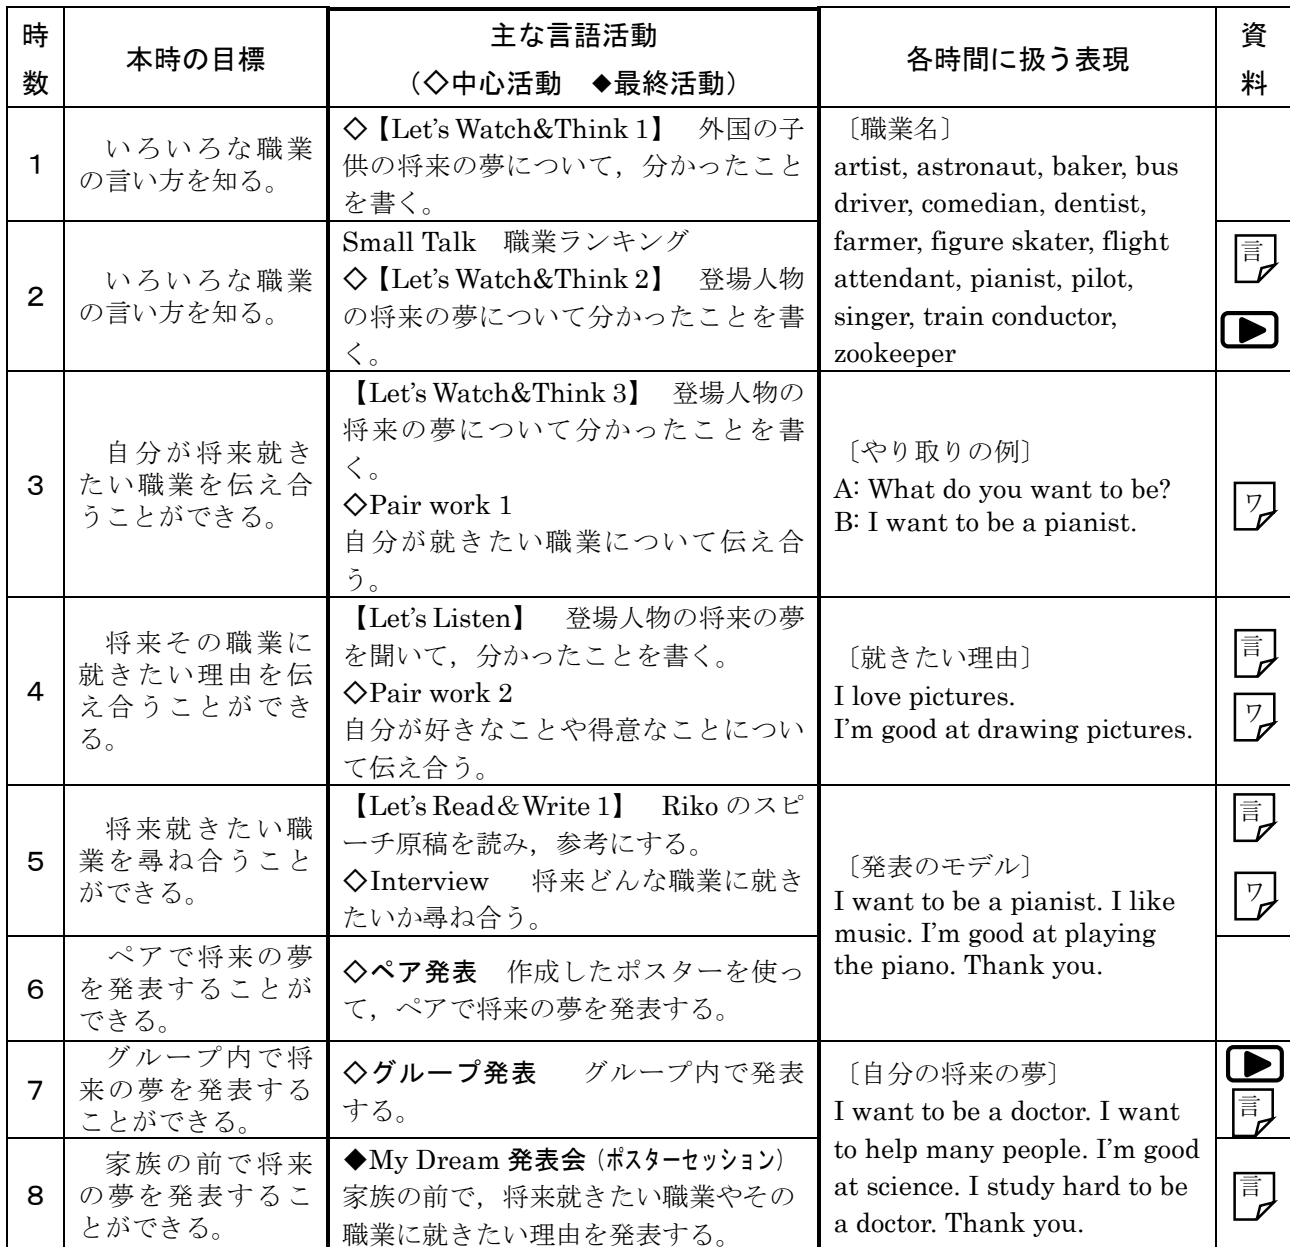 時数
本時の目標
主な言語活動
（◇中心活動　◆最終活動）
各時間に扱う表現
資料
1
いろいろな職業
の言い方を知る。
◇【Let's Watch&Think 1】　外国の子
供の将来の夢について，分かったこと
を書く。
〔職業名〕
artist, astronaut, baker, bus
driver, comedian, dentist,
farmer, figure skater, flight
attendant, pianist, pilot,
singer, train conductor,
zookeeper
2
いろいろな職業
の言い方を知る。
Small Talk　職業ランキング
◇【Let's Watch&Think 2】　登場人物
の将来の夢について分かったことを書
く。
言
3
自分が将来就き
たい職業を伝え合
うことができる。
【Let's Watch&Think 3】　登場人物の
将来の夢について分かったことを書
く。
◇Pair work 1
自分が就きたい職業について伝え合
う。
〔やり取りの例〕
A: What do you want to be?
B: I want to be a pianist.
ワ
4
将来その職業に
就きたい理由を伝
え合うことができ
る。
【Let's Listen】　登場人物の将来の夢
を聞いて，分かったことを書く。
◇Pair work 2
自分が好きなことや得意なことについ
て伝え合う。
〔就きたい理由〕
I love pictures.
I'm good at drawing pictures.
言
ワ
5
将来就きたい職
業を尋ね合うこと
ができる。
【Let's Read＆Write 1】　Riko のスピ
ーチ原稿を読み，参考にする。
◇Interview　将来どんな職業に就き
たいか尋ね合う。
〔発表のモデル〕
I want to be a pianist. I like
music. I'm good at playing
the piano. Thank you.
言
ワ
6
ペアで将来の夢
を発表することが
できる。
◇ペア発表　作成したポスターを使っ
て，ペアで将来の夢を発表する。
7
グループ内で将
来の夢を発表する
ことができる。
◇グループ発表　グループ内で発表
する。
〔自分の将来の夢〕
I want to be a doctor. I want
to help many people. I'm good
at science. I study hard to be
a doctor. Thank you.
言
8
家族の前で将来
の夢を発表するこ
とができる。
◆My Dream 発表会（ポスターセッション）
家族の前で，将来就きたい職業やその
職業に就きたい理由を発表する。
言